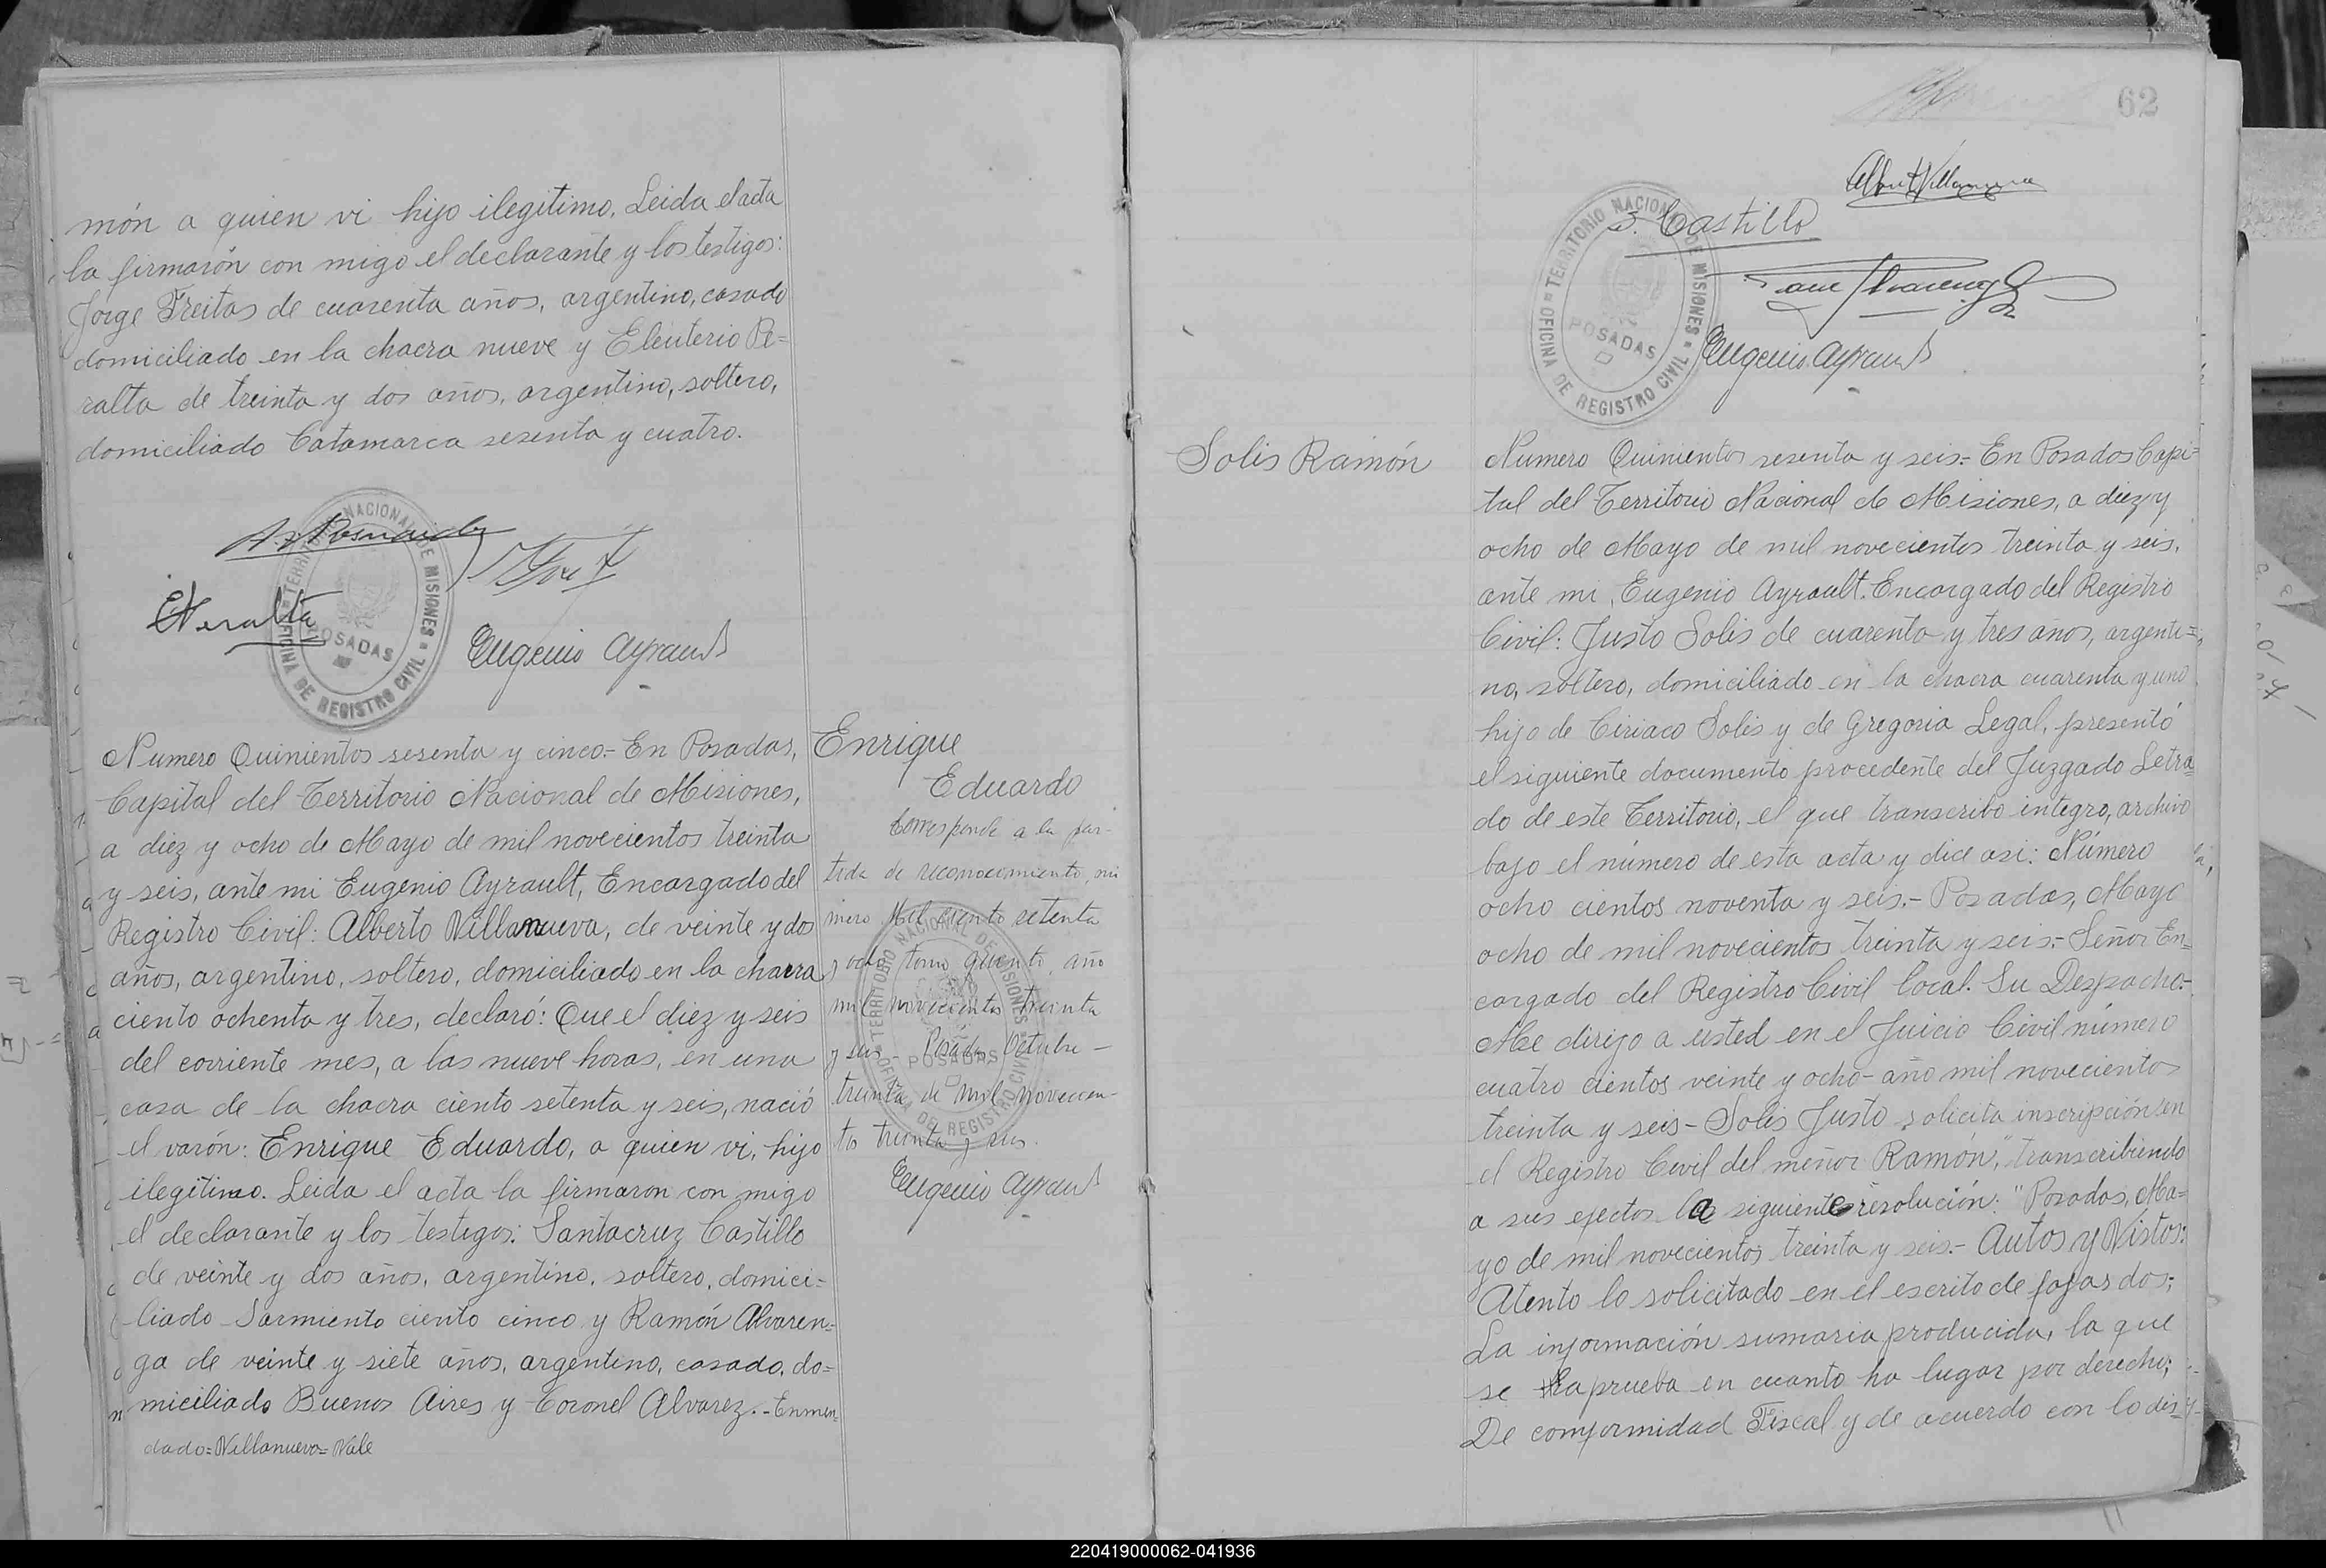 món a quien vi hijo ilegítimo. Leida el acta
la firmarón con migo el declarante y los testigos:
Jorge Freitas de cuarenta años, argentino, casado
domiciliado en la chacra nueve y Eleuterio Pe=
ralta de treinta y dos años, argentino, soltero,
domiciliado Catamarca sesenta y cuatro.
OFICINA DE REGISTRO CIVIL = TERRITORIO NACIONAL DE MISIONES =
POSADAS
EPeralta
Eugenio Ayrault
Numero Quinientos sesenta y cinco.- En Posadas,
Capital del Territorio Nacional de Misiones,
a diez y ocho de Mayo de mil novecientos treinta
y seis, ante mi Eugenio Ayrault, Encargado del
Registro Civil: Alberto Villanueva, de veinte y dos
años, argentino, soltero, domiciliado en la chacra
ciento ochenta y tres, declaró: Que el diez y seis
del corriente mes, a las nueve horas, en una
casa de la chacra ciento setenta y seis, nació
el varón: Enrique Eduardo, a quien vi, hijo
ilegítimo. Leida el acta la firmaron con migo
el declarante y los testigos: Santacruz Castillo
de veinte y dos años, argentino, soltero, domici=
liado Sarmiento ciento cinco y Ramón Alvaren=
ga de veinte y siete años, argentino, casado, do=
miciliado Buenos Aires y Coronel Alvarez.-Enmen
dado=Villanueva=Vale
Enrique
Eduardo
Corresponde a la par-
tida de reconocimiento, nú
mero Mil ciento setenta
y ocho tomo quinto, año
mil novecientos treinta
y seis - Posadas Octubre -
treinta de mil novecien-
tos treinta y seis.
OFICINA DEL REGISTRO CIVIL TERRITORIO NACIONAL DE MISIONES
POSADAS
Eugenio Ayrault
62
Albert Villanueva
S. Castillo
OFICINA DE REGISTRO CIVIL = TERRITORIO NACIONAL DE MISIONES =
POSADAS
Eugenio Ayrault
Solis Ramón
Numero Quinientos sesenta y seis.- En Posadas Capi=
tal del Territorio Nacional de Misiones, a diez y
ocho de Mayo de mil novecientos treinta y seis,
ante mi, Eugenio Ayrault. Encargado del Registro
Civil: Justo Solis de cuarenta y tres años, argenti=
no, soltero, domiciliado en la chacra cuarenta y uno
hijo de Ciriaco Solis y de Gregoria Legal, presentó
el siguiente documento procedente del Juzgado Letra
do de este Territorio, el que transcribo integro, archivo
bajo el número de esta acta y dice asi: Número
ocho cientos noventa y seis.- Posadas, Mayo
ocho de mil novecientos treinta y seis.- Señor En=
cargado del Registro Civil local. Su Despacho.-
Me dirijo a usted en el Juicio Civil número
cuatro cientos veinte y ocho - año mil novecientos
treinta y seis - Solis Justo solicita inscripción en
el Registro Civil del menor Ramón," transcribiendo
a sus efectos la siguiente resolución: "Posadas, Ma=
yo de mil novecientos treinta y seis.- Autos y Vistos:
Atento lo solicitado en el escrito de fojas dos;
La información sumaria producida, la que
se aprueba en cuanto ha lugar por derecho;
De comformidad Fiscal y de acuerdo con lo dis
220419000062-041936